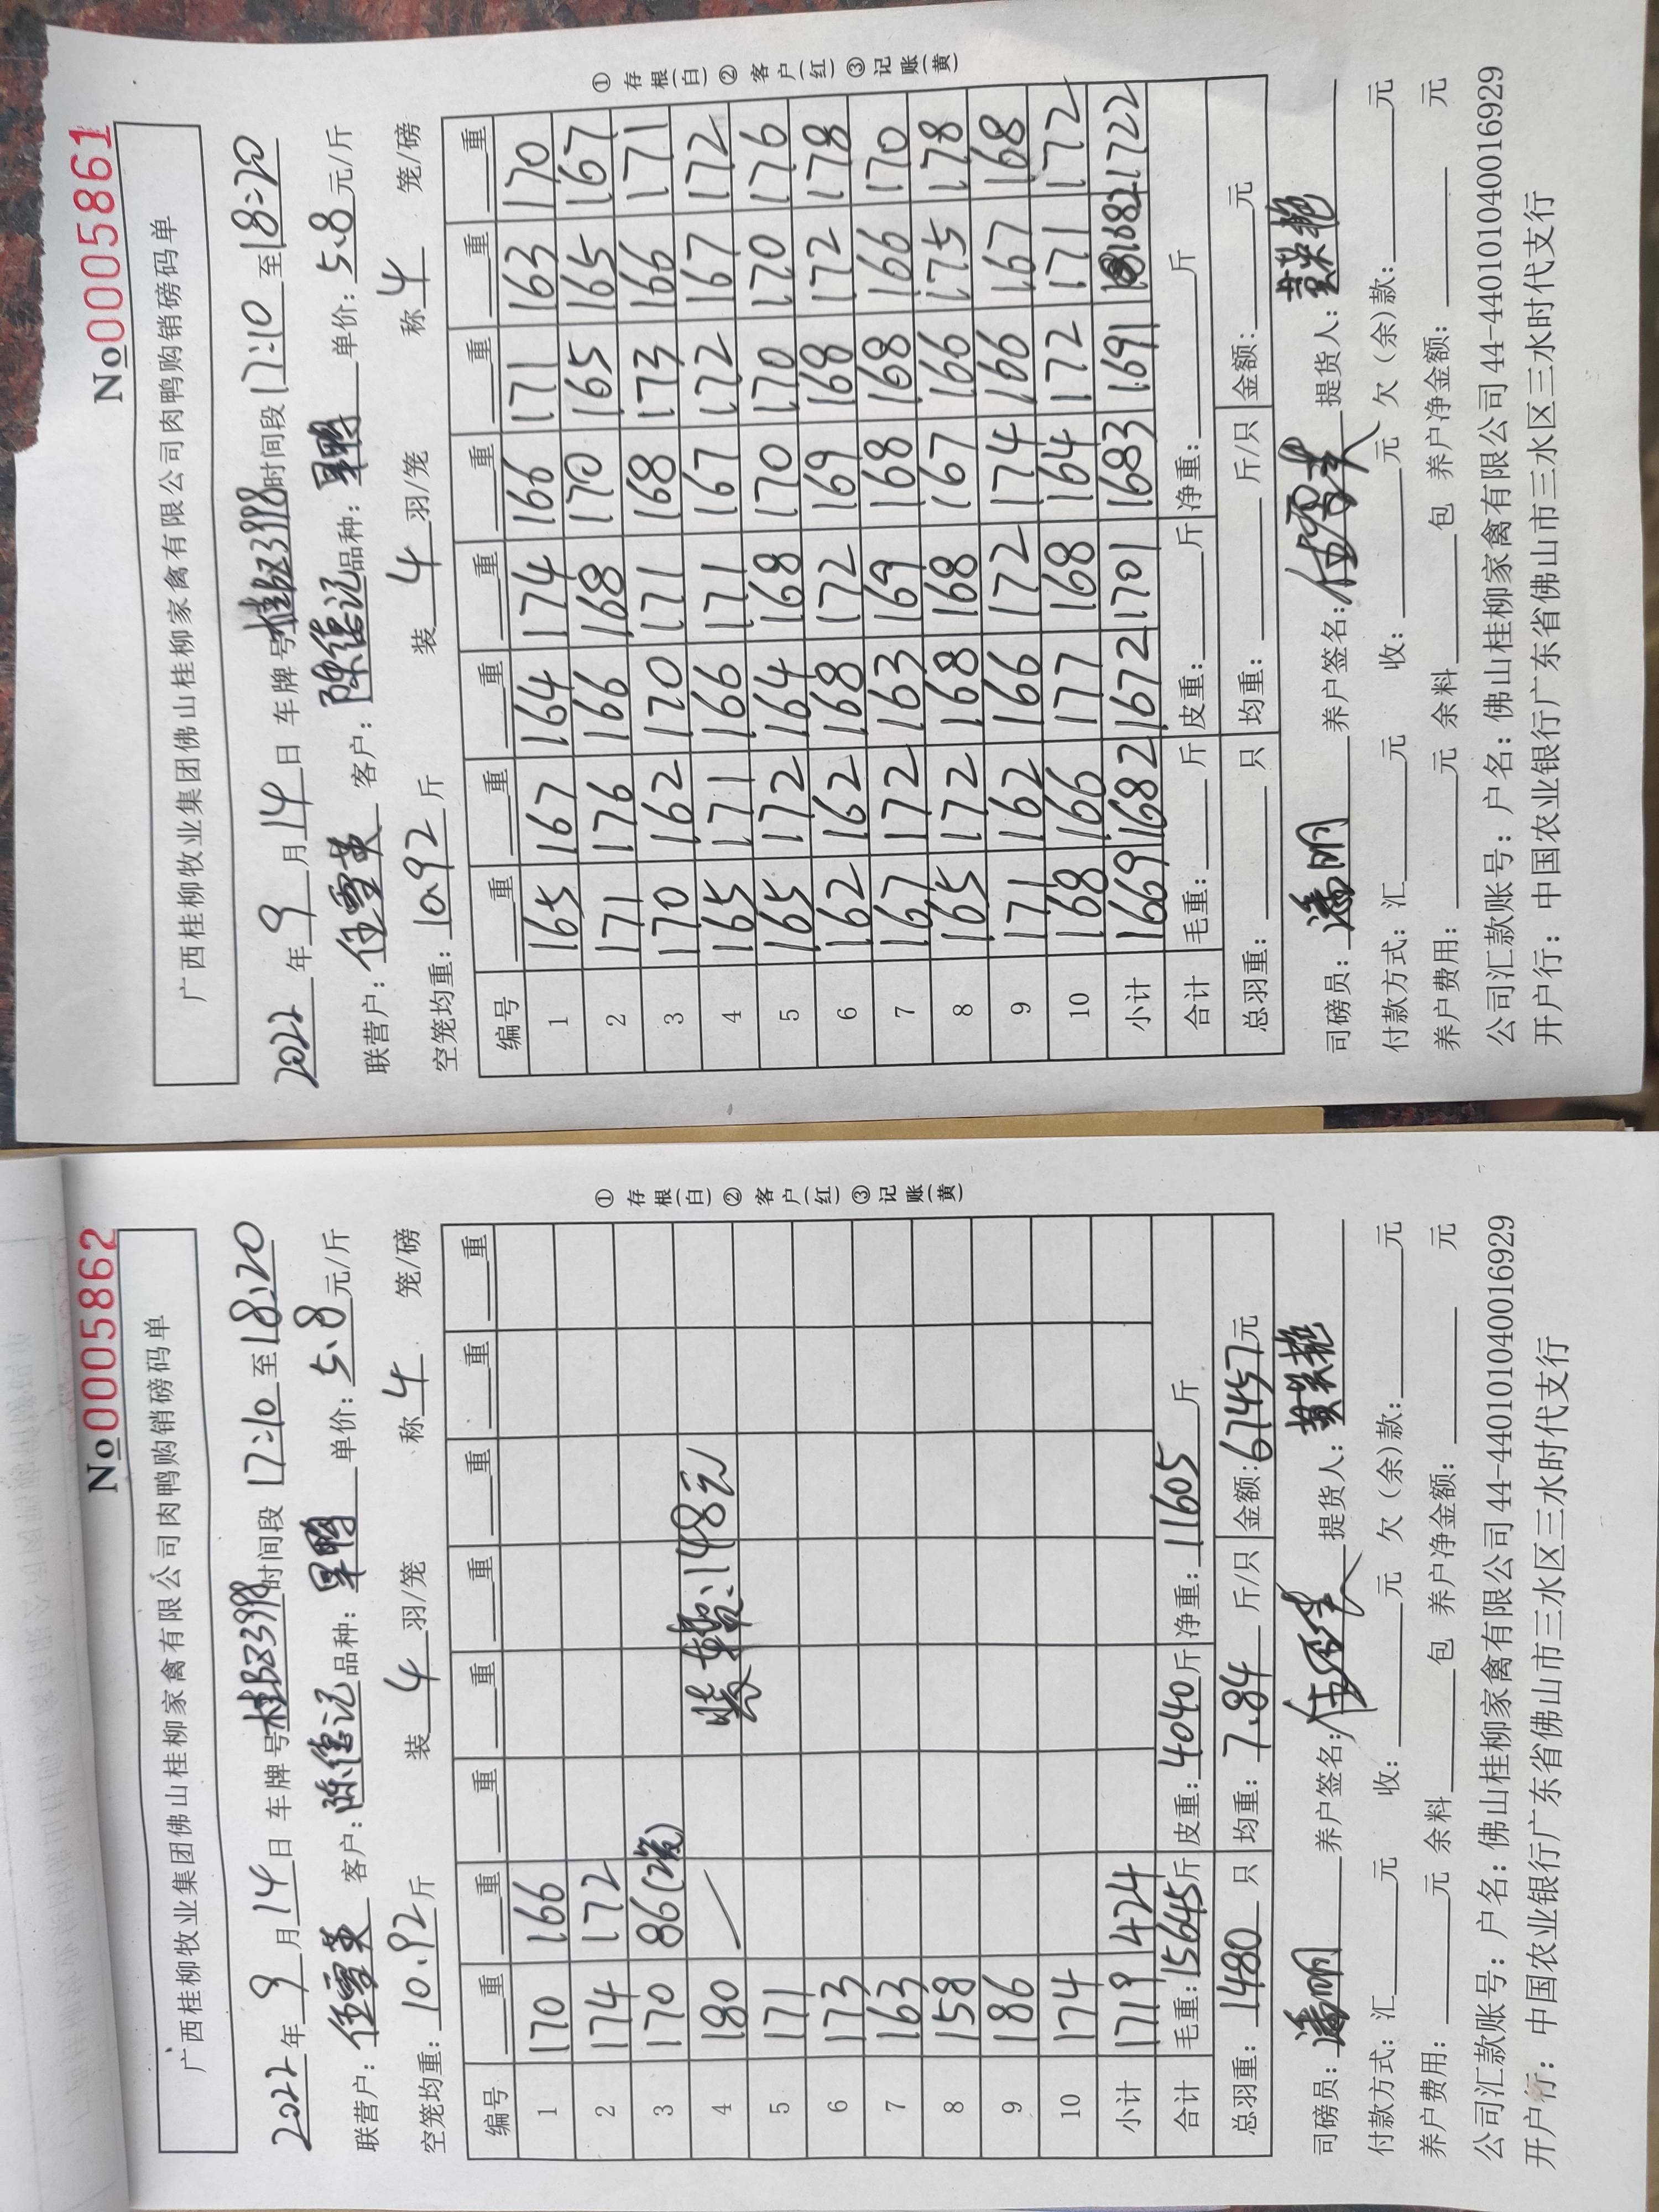 No 0005861
广西桂柳牧业集团佛山桂柳家禽有限公司肉鸭购销磅码单
2022 年 9 月 14 日 车牌号 桂BZ3998 时间段 17:10 至 18:20
联营户: 任雪英 客户: 陈德记 品种: 旱鸭 单价: 5.8 元/斤
空笼均重: 10.92 斤 装 4 羽/笼 称 4 笼/磅
编号 重 重 重 重 重 重 重 重
1 165 167 164 174 166 171 163 170
2 171 176 166 168 170 165 165 167
3 170 162 170 171 168 173 166 171
4 165 171 166 171 167 172 167 172
5 165 172 164 168 170 170 170 176
6 162 162 168 172 169 168 172 178
7 167 172 163 169 168 168 166 170
8 165 172 168 168 167 166 175 178
9 171 162 166 172 174 166 167 168
10 168 166 177 168 164 172 171 172
小计 1669 1682 1672 1701 1683 1691 1682 1722
合计 毛重: 斤 皮重: 斤 净重: 斤
总羽重: 只 均重: 斤/只 金额: 元
司磅员: 潘明 养户签名: 任雪英 提货人: 黄荣艳
付款方式: 汇 元 收: 元 欠(余)款: 元
养户费用: 元 余料 包 养户净金额: 元
公司汇款账号: 户名: 佛山桂柳家禽有限公司 44-440101040016929
开户行: 中国农业银行广东省佛山市三水区三水时代支行
①存根(白)②客户(红)③记账(黄)
No 0005862
广西桂柳牧业集团佛山桂柳家禽有限公司肉鸭购销磅码单
2022 年 9 月 14 日 车牌号 桂BZ3998 时间段 17:10 至 18:20
联营户: 任雪英 客户: 陈德记 品种: 旱鸭 单价: 5.8 元/斤
空笼均重: 10.92 斤 装 4 羽/笼 称 4 笼/磅
编号 重 重 重 重 重 重 重 重
1 170 166
2 174 172
3 170 86(2笼)
4 180 装车费:148元
5 171
6 173
7 163
8 158
9 186
10 174
小计 1719 424
合计 毛重: 15645 斤 皮重: 4040 斤 净重: 11605 斤
总羽重: 1480 只 均重: 7.84 斤/只 金额: 67457 元
司磅员: 潘明 养户签名: 任雪英 提货人: 黄荣艳
付款方式: 汇 元 收: 元 欠(余)款: 元
养户费用: 元 余料 包 养户净金额: 元
公司汇款账号: 户名: 佛山桂柳家禽有限公司 44-440101040016929
开户行: 中国农业银行广东省佛山市三水区三水时代支行
①存根(白)②客户(红)③记账(黄)